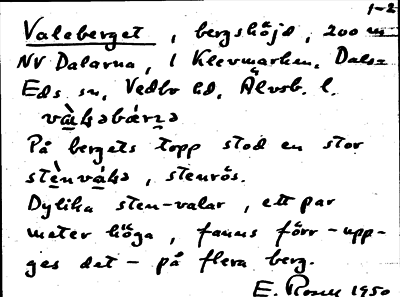 1-2
Valeberget, bergshöjd, 200 m
NV Dalarna, i Klevmarken, Dals-
Eds sn, Vedbo hd, Älvsb. l.
På bergets topp stod en stor
stenrös.
Dylika sten-valar, ett par
meter höga, fanns förr - upp-
ges det - på flera berg.
E. 1950